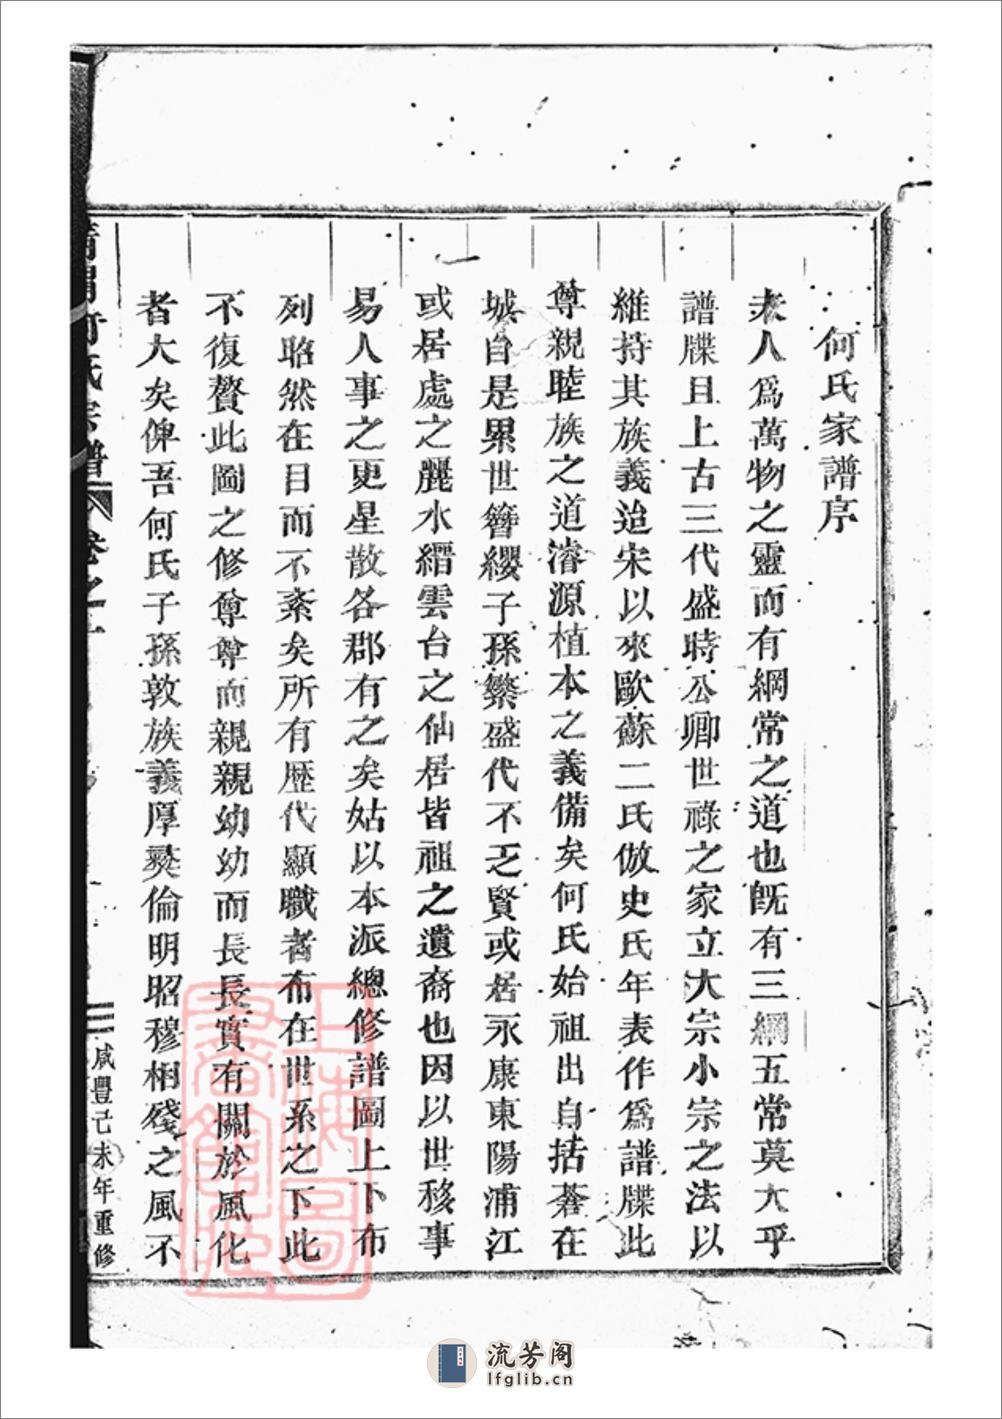 何氏家譜序
夫人爲萬物之靈而有綱常之道也旣有三綱五常莫大乎
譜牒且上古三代盛時公卿世祿之家立大宗小宗之法以
維持其族義迨宋以來歐蘇二氏倣史氏年表作爲譜牒此
尊親睦族之道濬源植本之義備矣何氏始祖出自括蒼在
城自是累世簪纓子孫繁盛代不乏賢或居永康東陽浦江
或居處之麗水縉雲台之仙居皆祖之遺裔也因以世移事
易人事之更星散各郡有之矣姑以本派總修譜圖上下布
列昭然在目而不紊矣所有歷代顯職者布在世系之下此
不復贅此圖之修尊尊而親親幼幼而長長實有關於風化
者大矣俾吾何氏子孫敦族義厚彜倫明昭穆相殘之風不
何氏宗譜 卷之一
咸豐己未年重修
上海圖書館藏
流芳阁
lfglib.cn